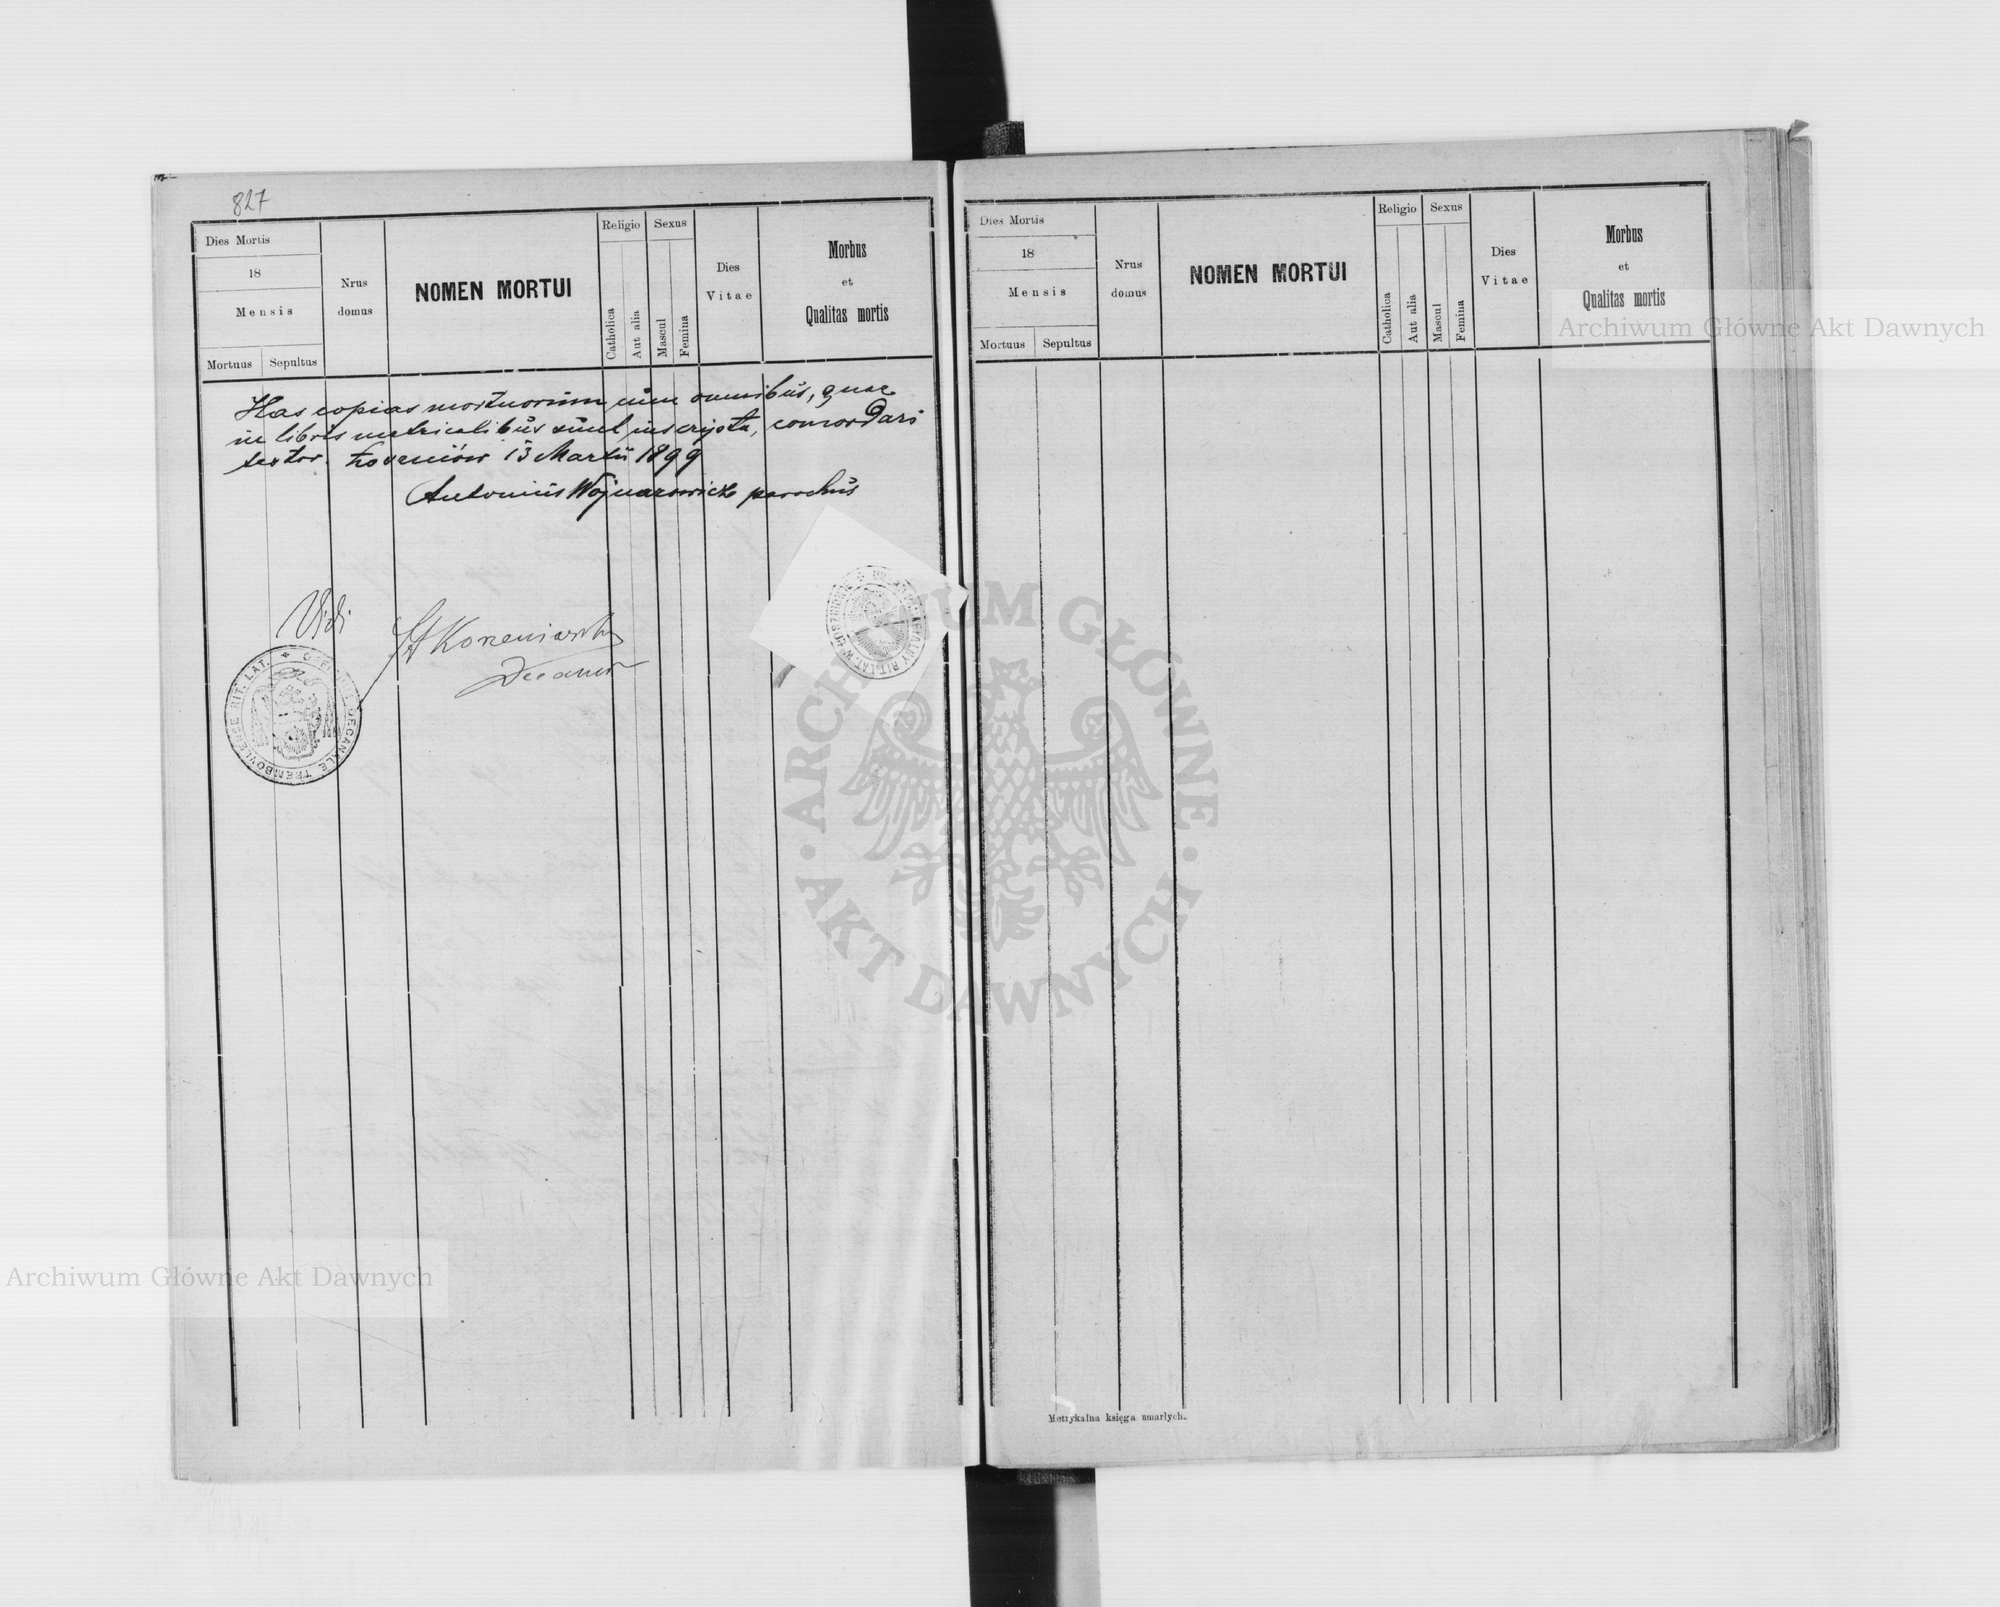 827
Dies Mortis
18
Mensis
Mortuus Sepultus
Nrus domus
NOMEN MORTUI
Religio
Catholica
Aut alia
Sexus
Mascul
Femina
Dies Vitae
Morbus
et
Qualitas mortis
Has copias mortuorum cum omnibus, quae
in libris metricalibus sunt inscripta, concordari
testor. 13 Martii 1899
Antonius Wojnarowicz parochus
Vidi
Decanus
OFFICIUM DECANALE TREMBOVLENSE RIT. LAT.
Dies Mortis
18
Mensis
Mortuus Sepultus
Nrus domus
NOMEN MORTUI
Religio
Catholica
Aut alia
Sexus
Mascul
Femina
Dies Vitae
Morbus
et
Qualitas mortis
Metrykalna księga umarłych.
Archiwum Główne Akt Dawnych
ARCHIWUM GŁÓWNE · AKT DAWNYCH ·
Archiwum Główne Akt Dawnych